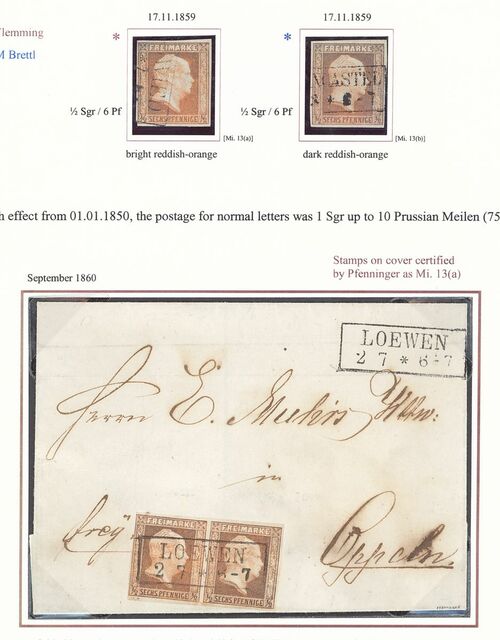 17.11.1859
17.11.1859
Flemming
*
*
M Brettl
FREIMARKE
SECHS PFENNIGE
FREIMARKE
NCASTEL
SECHS PFENNIGE
½ Sgr / 6 Pf
½ Sgr / 6 Pf
[Mi. 13(a)]
[Mi. 13(b)]
bright reddish-orange
dark reddish-orange
h effect from 01.01.1850, the postage for normal letters was 1 Sgr up to 10 Prussian Meilen (75
Stamps on cover certified
by Pfenninger as Mi. 13(a)
September 1860
LOEWEN
2 7 * 6-7
Herrn E. Muhrs Wttw:
in
frey
Oppeln.
FREIMARKE
FREIMARKE
LOEWEN
2 7 * 6-7
SECHS PFENNIGE
SECHS PFENNIGE